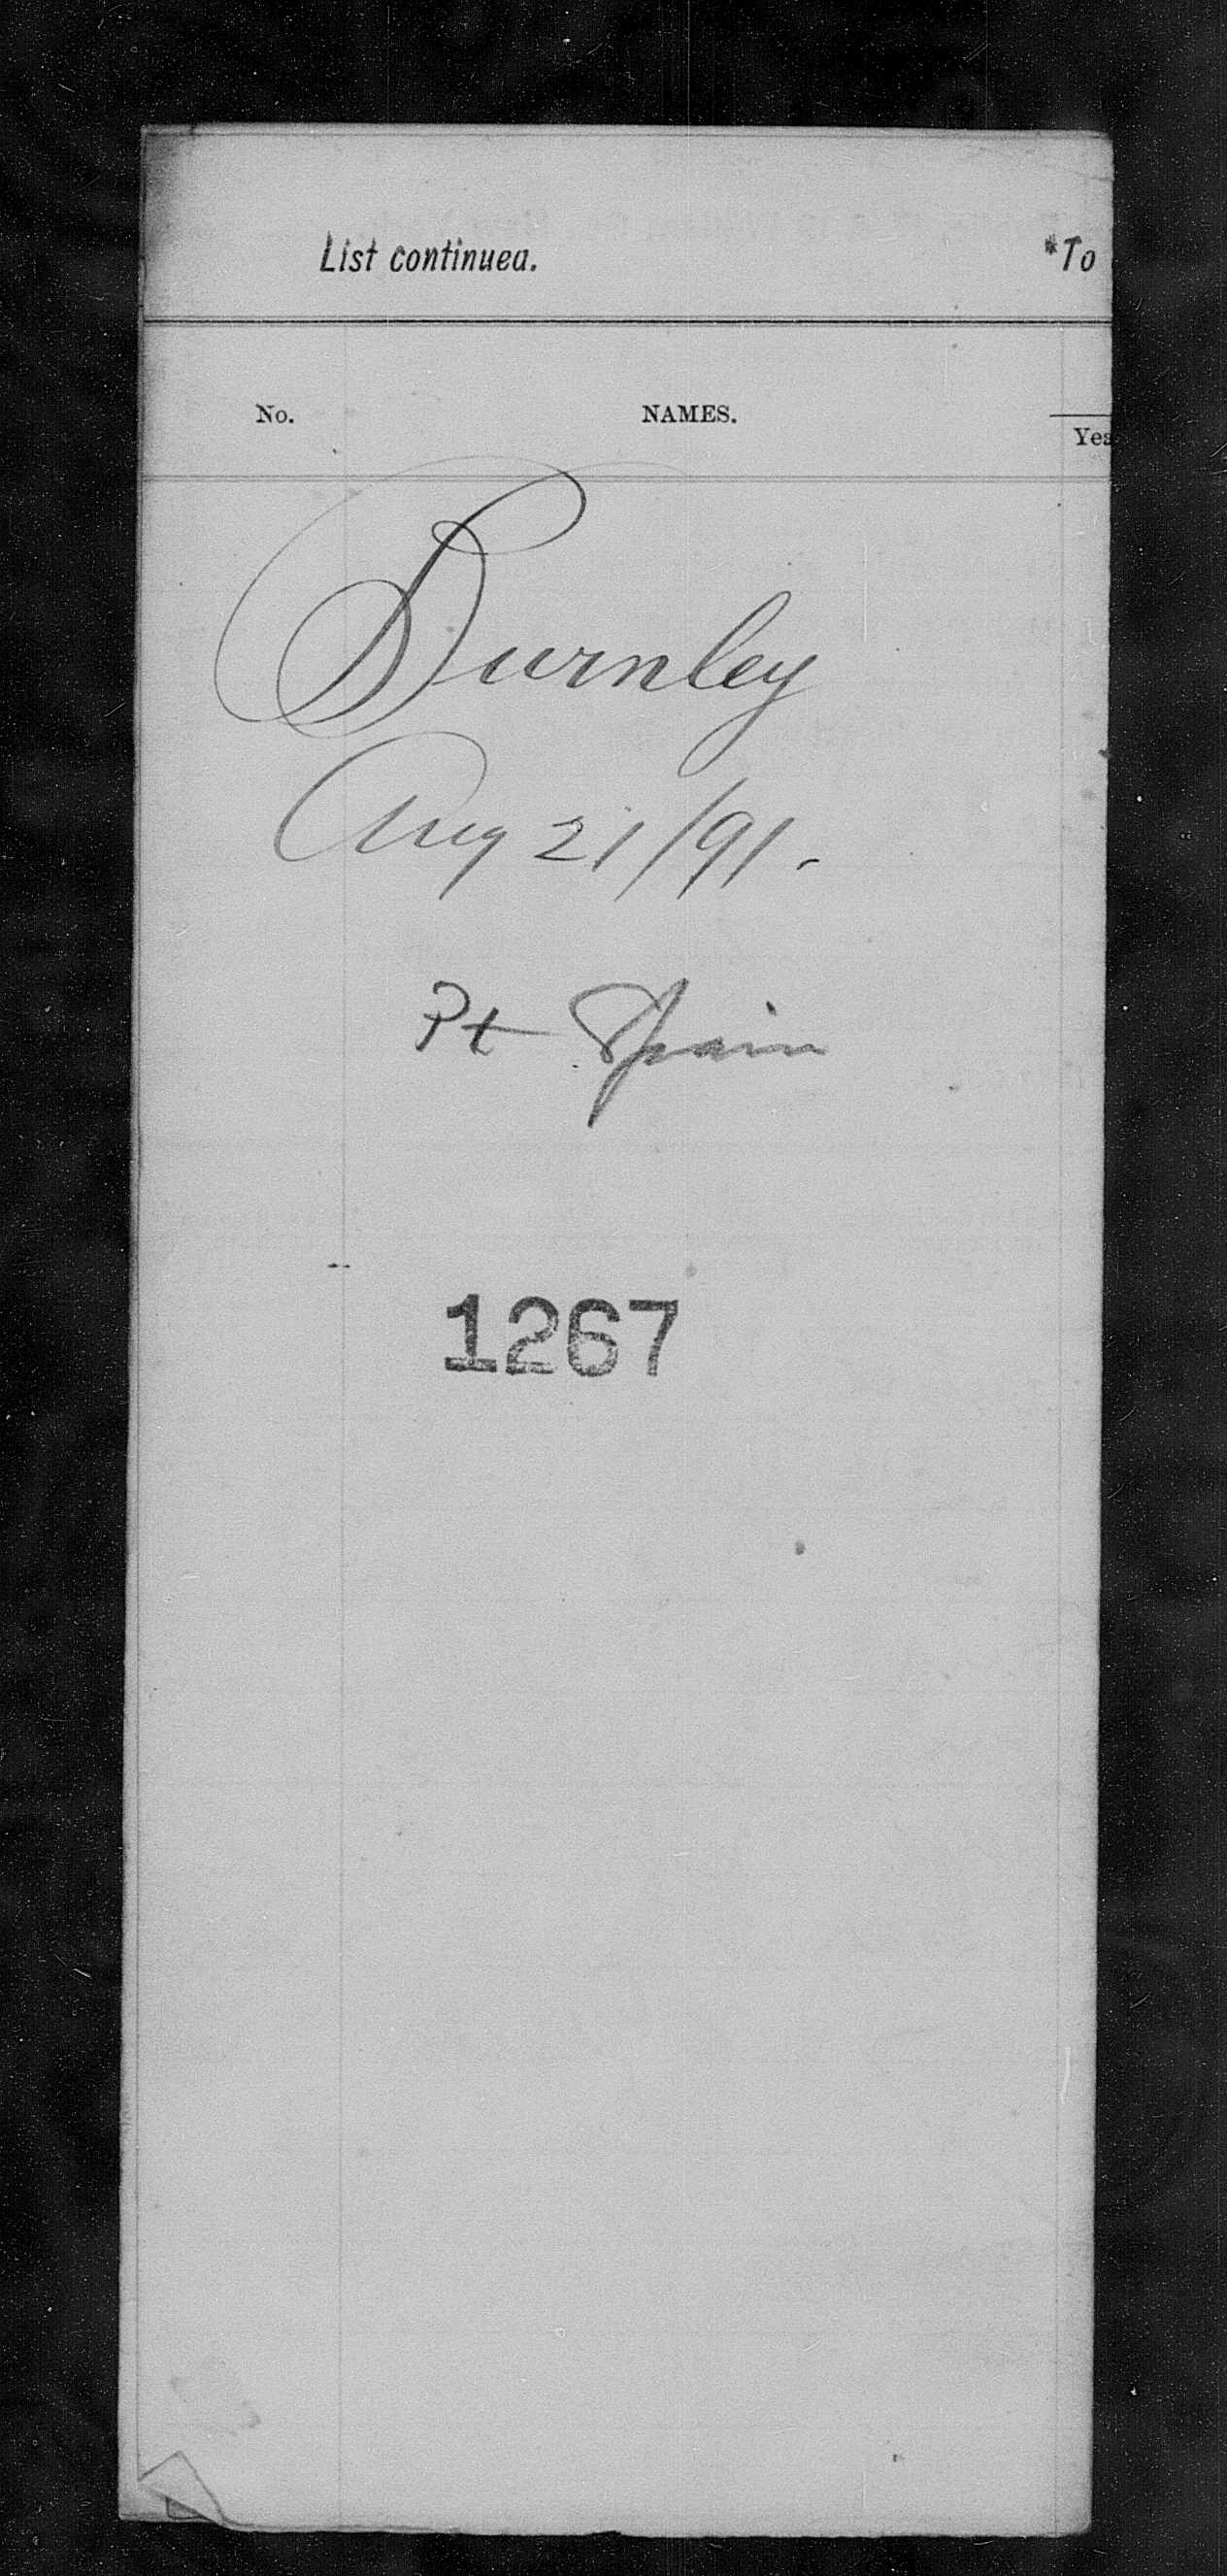 List continued.
*To
No.
NAMES.
Yea
Burnley
Aug 21/91.
Pt Spain
1267